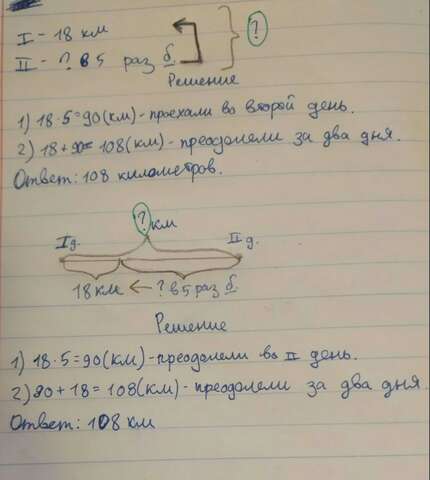 I - 18 км
II - ? в 5 раз б. ?
Решение
1) 18·5=90(км)-проехали во второй день.
2) 18+90=108(км)-преодолели за два дня.
Ответ: 108 километров.
? км
I д. II д.
18 км ← ? в 5 раз б.
Решение
1) 18·5=90(км)-преодолели во II день.
2) 90+18=108(км)-преодолели за два дня.
Ответ: 108 км